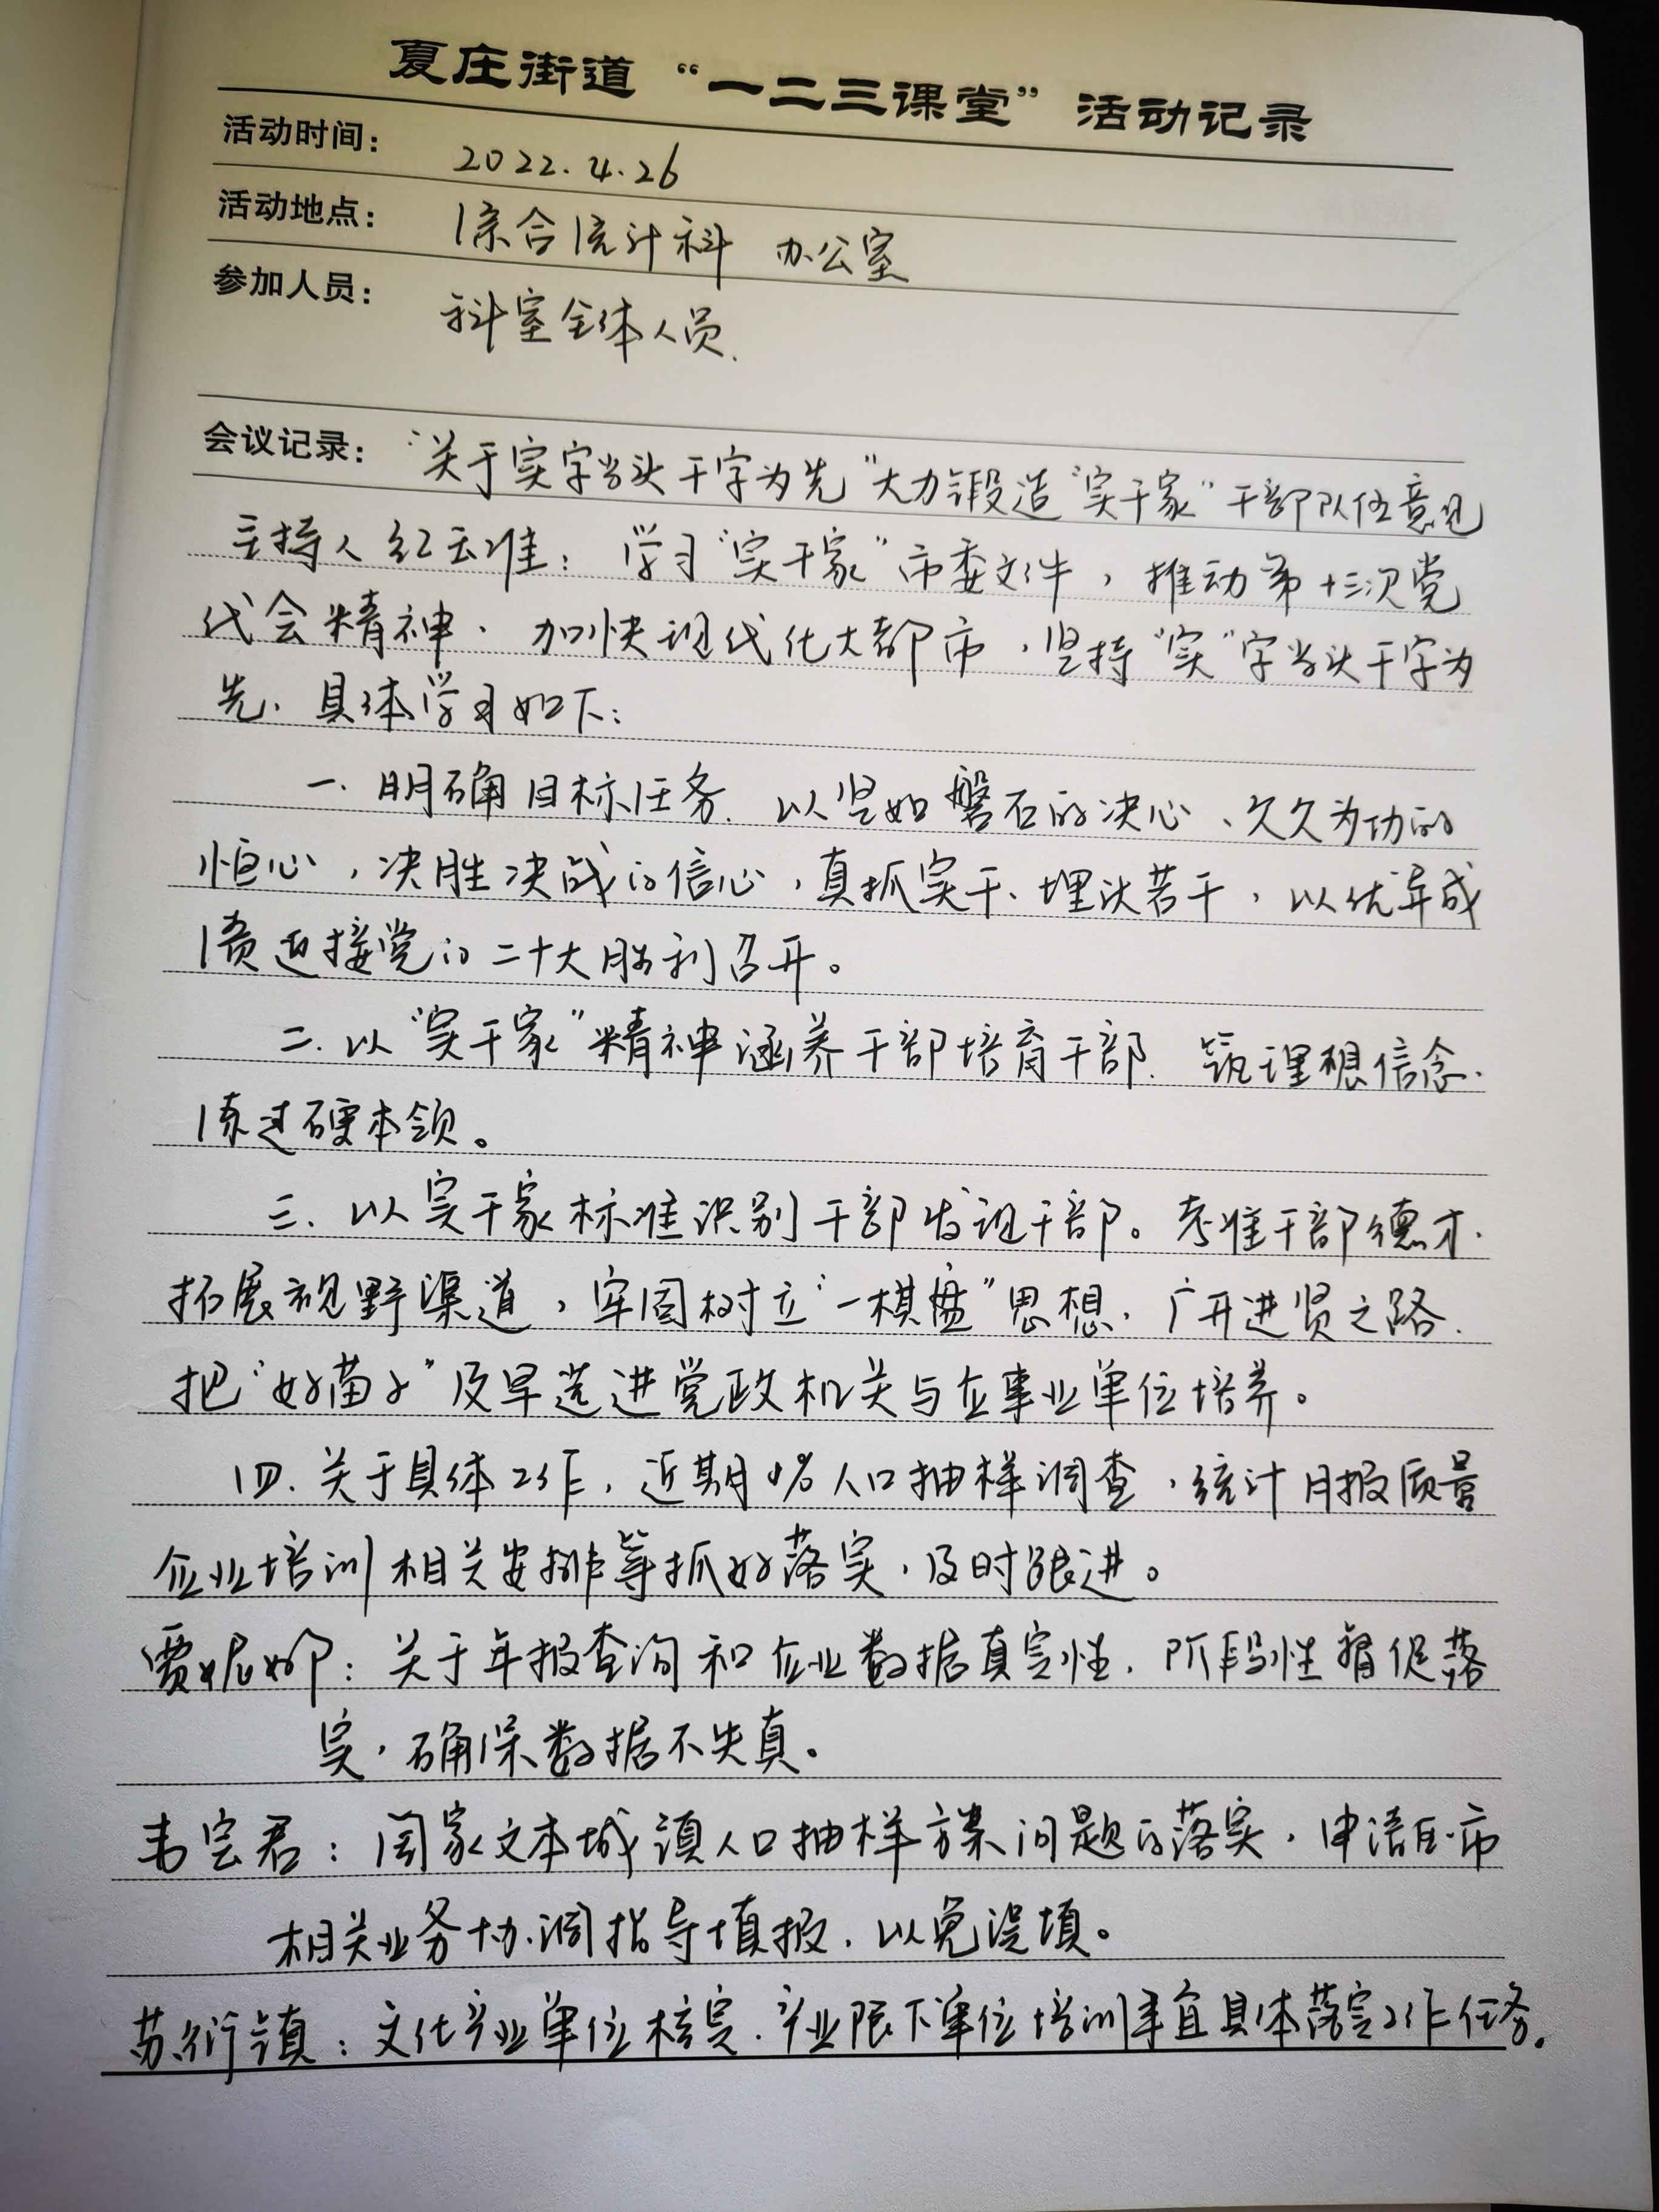 夏庄街道“一二三课堂”活动记录
活动时间： 2022.4.26
活动地点： 综合统计科 办公室
参加人员： 科室全体人员.
会议记录： “关于实字当头干字为先”大力锻造“实干家”干部队伍意见
主持人纪玉准：学习“实干家”市委文件，推动第十三次党
代会精神、加快现代化大都市，坚持“实”字当头干字为
先、具体学习如下：
一、明确目标任务. 以坚如磐石的决心、久久为功的
恒心，决胜决战的信心，真抓实干、埋头苦干，以优异成
绩迎接党的二十大胜利召开。
二、以“实干家”精神涵养干部培育干部. 筑理想信念、
练过硬本领。
三、以实干家标准识别干部发现干部。考准干部德才、
拓展视野渠道，牢固树立“一棋盘”思想，广开进贤之路.
把“好苗子”及早选进党政机关与企事业单位培养。
四、关于具体工作，近期1%人口抽样调查，统计月报质量
企业培训相关安排等抓好落实，及时跟进。
贾妮娜：关于年报查询和企业数据真实性，阶段性督促落
实，确保数据不失真。
韦宗君：国家文本城镇人口抽样方案问题的落实，申请区、市
相关业务协调指导填报，以免误填。
苏衍镇：文化产业单位核实、产业限下单位培训事宜具体落实工作任务。